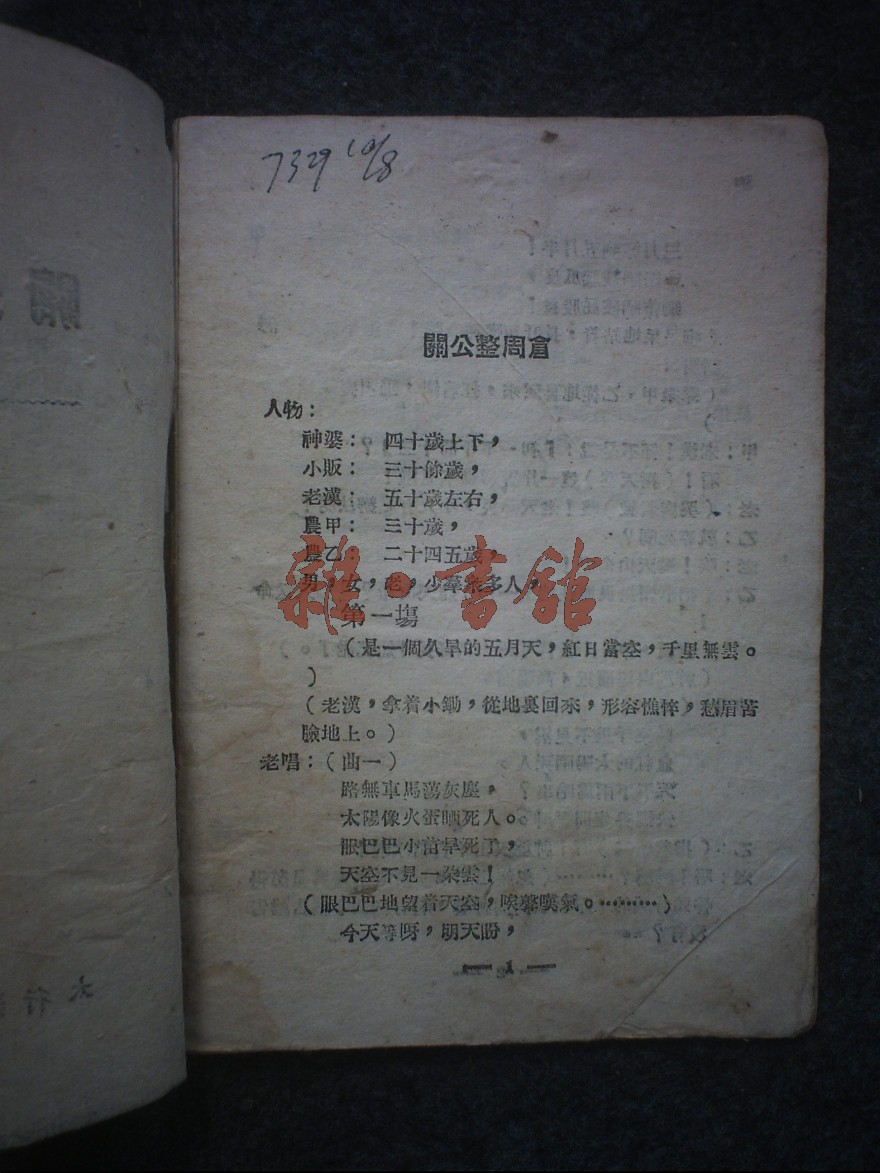 7329 10/8
關公整周倉
人物：
神婆：　四十歲上下，
小販：　三十餘歲，
老漢：　五十歲左右，
農甲：　三十歲，
農乙：　二十四五歲，
男，女，老，少羣衆多人，
第一塲
（是一個久旱的五月天，紅日當空，千里無雲。
）
（老漢，拿着小鋤，從地裏回來，形容憔悴，愁眉苦
臉地上。）
老唱：（曲一）
路無車馬蕩灰塵，
太陽像火蛋晒死人。
眼巴巴小苗旱死了，
天空不見一朶雲！
（眼巴巴地望着天空，唉聲嘆氣。………）
今天等呀，明天盼，
— 1 —
雜·書館